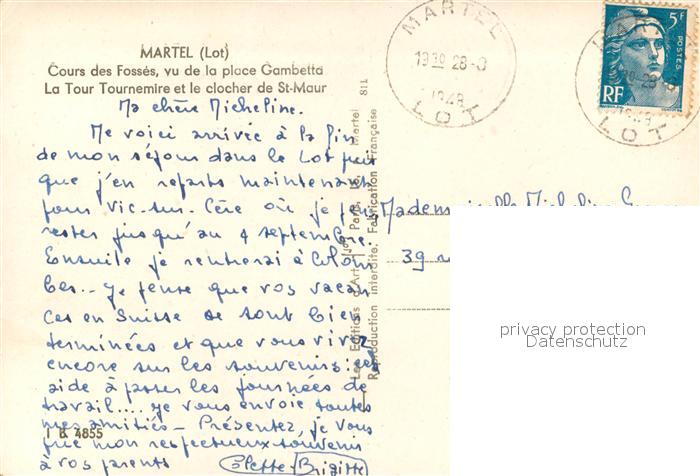 MARTEL (Lot)
Cours des Fossés, vu de la place Gambetta
La Tour Tournemire et le clocher de St-Maur
Ma chère Micheline.
Me voici arrivée à la fin
de mon séjour dans le Lot puis
que j'en repars maintenant
pour Vic-sur-Cère où je
rester jusqu'au 4 septembre.
Ensuite je rentrerai à Colom
bes.. Je pense que vos vacan
ces en Suisse se sont bien
terminées et que vous vivez
encore sur les souvenirs: cela
aide à passer les journées de
travail.... Je vous envoie toutes
mes amitiés - Présentez, je vous
prie mon respectueux souvenir
à vos parents
Colette Brigitte
I B 4855
Les Editions d'Art Paris, 18, r. Martel 811
Reproduction interdite. Fabrication Française
MARTEL
19 30 28-8
1948
LOT
5F
POSTES
RF
MARTEL
30 28-8
1948
LOT
Mademoiselle Micheline
39
privacy protection
Datenschutz